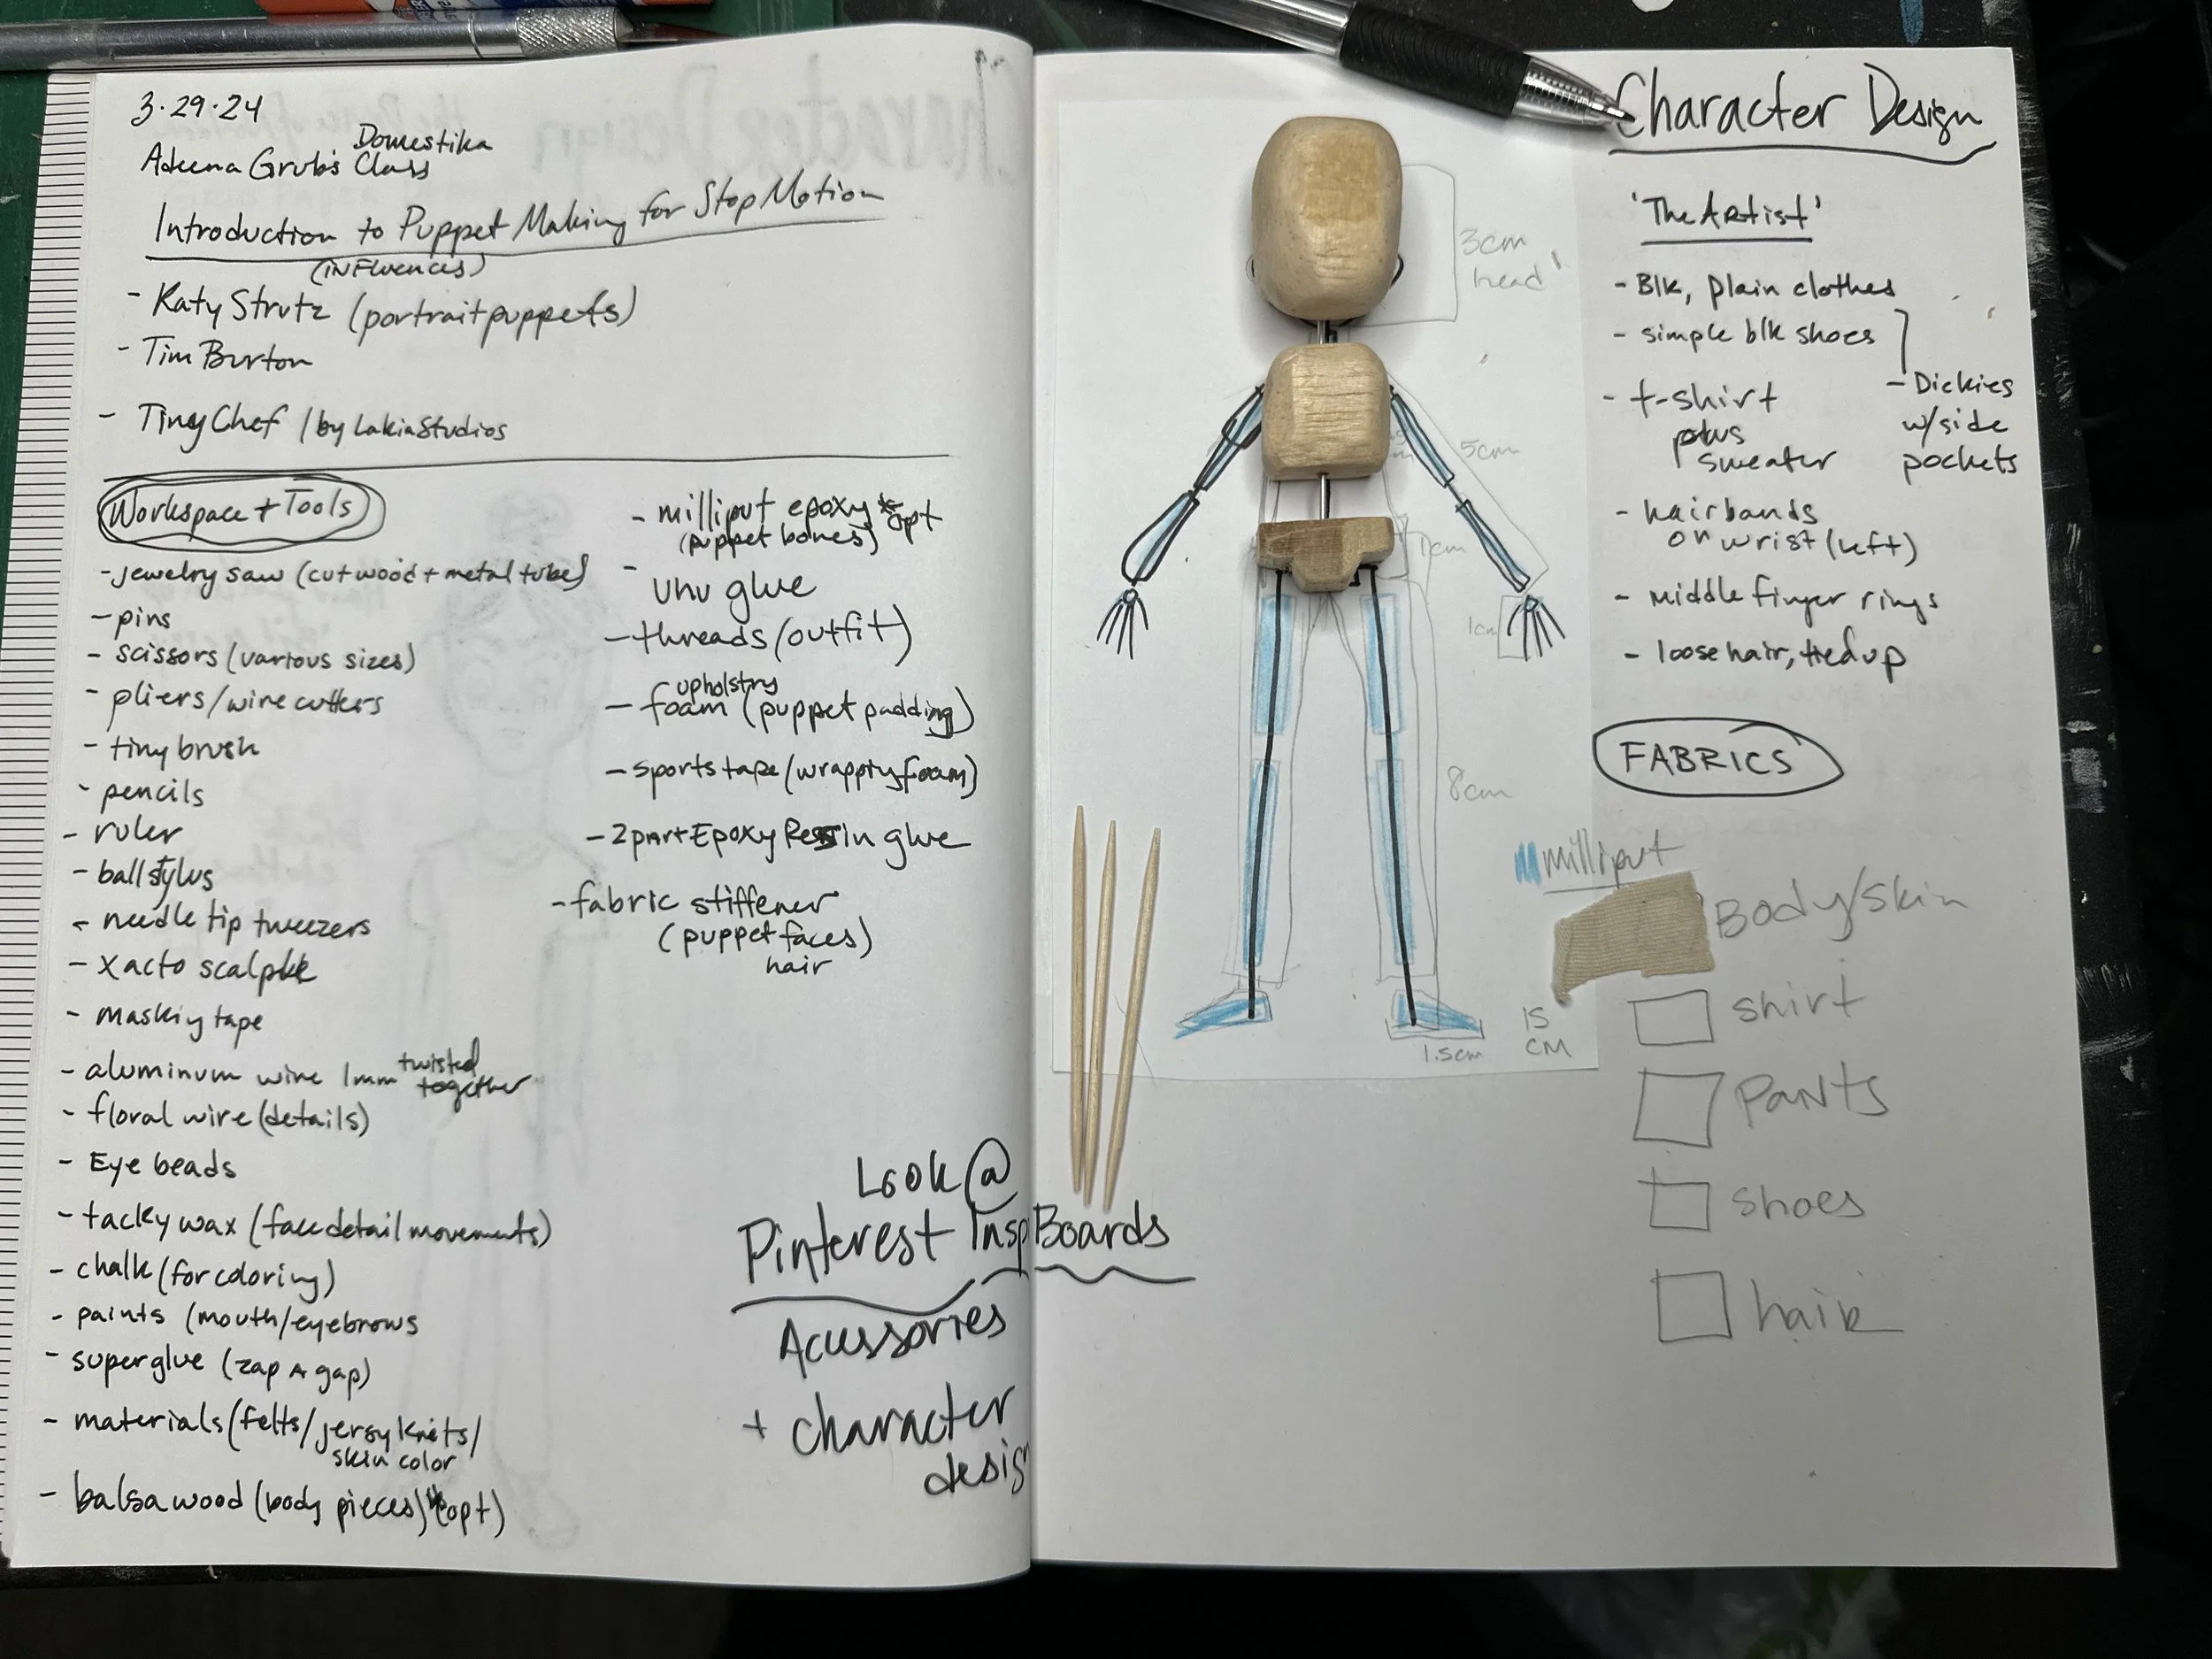 3.29.24
Domestika
Adeena Grubs Class
Introduction to Puppet Making for Stop Motion
(influences)
- Katy Strutz (portrait puppets)
- Tim Burton
- Tiny Chef / by Lakia Studios
Workspace + Tools
- jewelry saw (cut wood + metal tube)
- pins
- scissors (various sizes)
- pliers/wire cutters
- tiny brush
- pencils
- ruler
- ball stylus
- needle tip tweezers
- xacto
- masking tape
- aluminum wire 1mm twisted together
- floral wire (details)
- Eye beads
- tacky wax (face detail movements)
- chalk (for coloring)
- paints (mouth/eyebrows
- superglue (zap A gap)
- materials (felts/jersy knits/
skin color
- balsa wood (body pieces) (opt)
- milliput epoxy * opt
(puppet bones)
- uhu glue
- threads (outfit)
upholstry
- foam (puppet padding)
- sports tape (wrapping foam)
- 2part Epoxy Resin glue
- fabric stiffener
(puppet faces)
hair
Look @
Pinterest Insp Boards
Accessories
+ character
desig
Character Design
'The Artist'
- Blk, plain clothes
- simple blk shoes
- Dickies
w/side
pockets
- t-shirt
plus
sweater
- hairbands
on wrist (left)
- middle finger rings
- loose hair, tied up
FABRICS
3cm
head
5cm
1cm
1cm
8cm
1.5cm
15
CM
milliput
Body/skin
shirt
Pants
shoes
hair